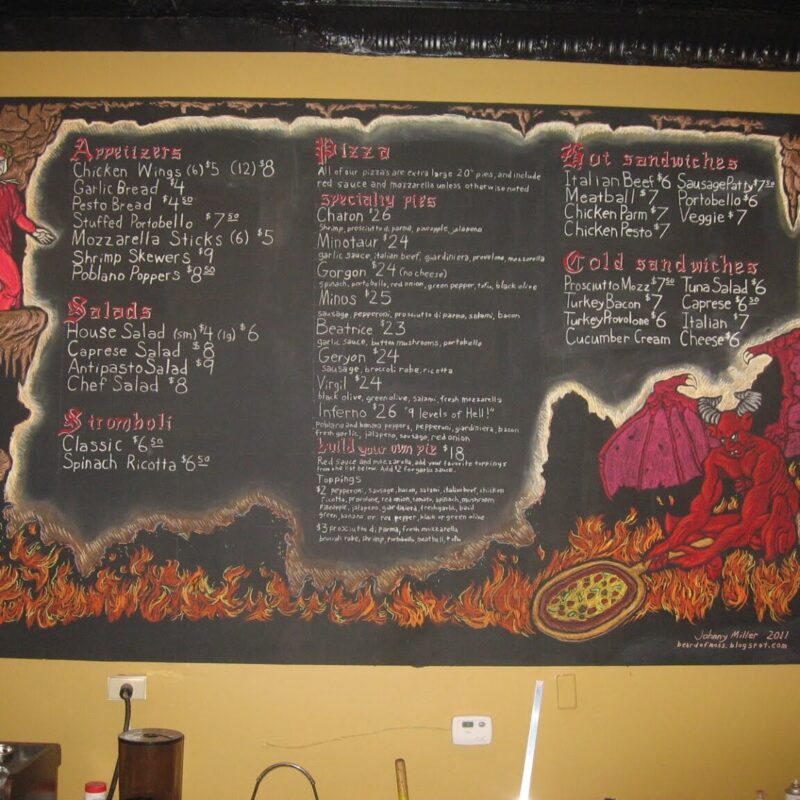 Appetizers
Chicken Wings (6) $5 (12) $8
Garlic Bread $4
Pesto Bread $4 50
Stuffed Portobello $7 50
Mozzarella Sticks (6) $5
Shrimp Skewers $9
Poblano Poppers $8 50
Salads
House Salad (sm) $4 (lg) $6
Caprese Salad $8
Antipasto Salad $9
Chef Salad $8
Stromboli
Classic $6 50
Spinach Ricotta $6 50
Pizza
All of our pizza's are extra large 20" pies, and include
red sauce and mozzarella unless otherwise noted
specialty pies
Charon $26
Shrimp, prosciutto di parma, pineapple, jalapeno
Minotaur $24
garlic sauce, italian beef, giardiniera, provolone, mozzarella
Gorgon $24 (no cheese)
spinach, portobello, red onion, green pepper, tofu, black olive
Minos $25
sausage, pepperoni, prosciutto di parma, salami, bacon
Beatrice $23
garlic sauce, button mushrooms, portobello
Geryon $24
sausage, broccoli robe, ricotta
Virgil $24
black olive, green olive, salami, fresh mozzarella
Inferno $26 "9 levels of Hell!"
poblano and banana peppers, pepperoni, giardiniera, bacon
fresh garlic, jalapeno, sausage, red onion
build your own pie $18
Red sauce and mozzarella, add your favorite toppings
from the list below. Add $2 for garlic sauce.
Toppings
$2 pepperoni, sausage, bacon, salami, italian beef, chicken
ricotta, provolone, red onion, tomato, spinach, mushroom
pineapple, jalapeno, giardiniera, fresh garlic, basil
green, banana or red pepper, black or green olive
$3 prosciutto di parma, fresh mozzarella
broccoli robe, shrimp, portobello, meatball, tofu
Hot sandwiches
Italian Beef $6 Sausage Patty $7 50
Meatball $7 Portobello $6
Chicken Parm $7 Veggie $7
Chicken Pesto $7
Cold sandwiches
Prosciutto Mozz $7 50 Tuna Salad $6
Turkey Bacon $7 Caprese $6 50
Turkey Provolone $6 Italian $7
Cucumber Cream Cheese $6
Johnny Miller 2011
beardofmoss.blogspot.com